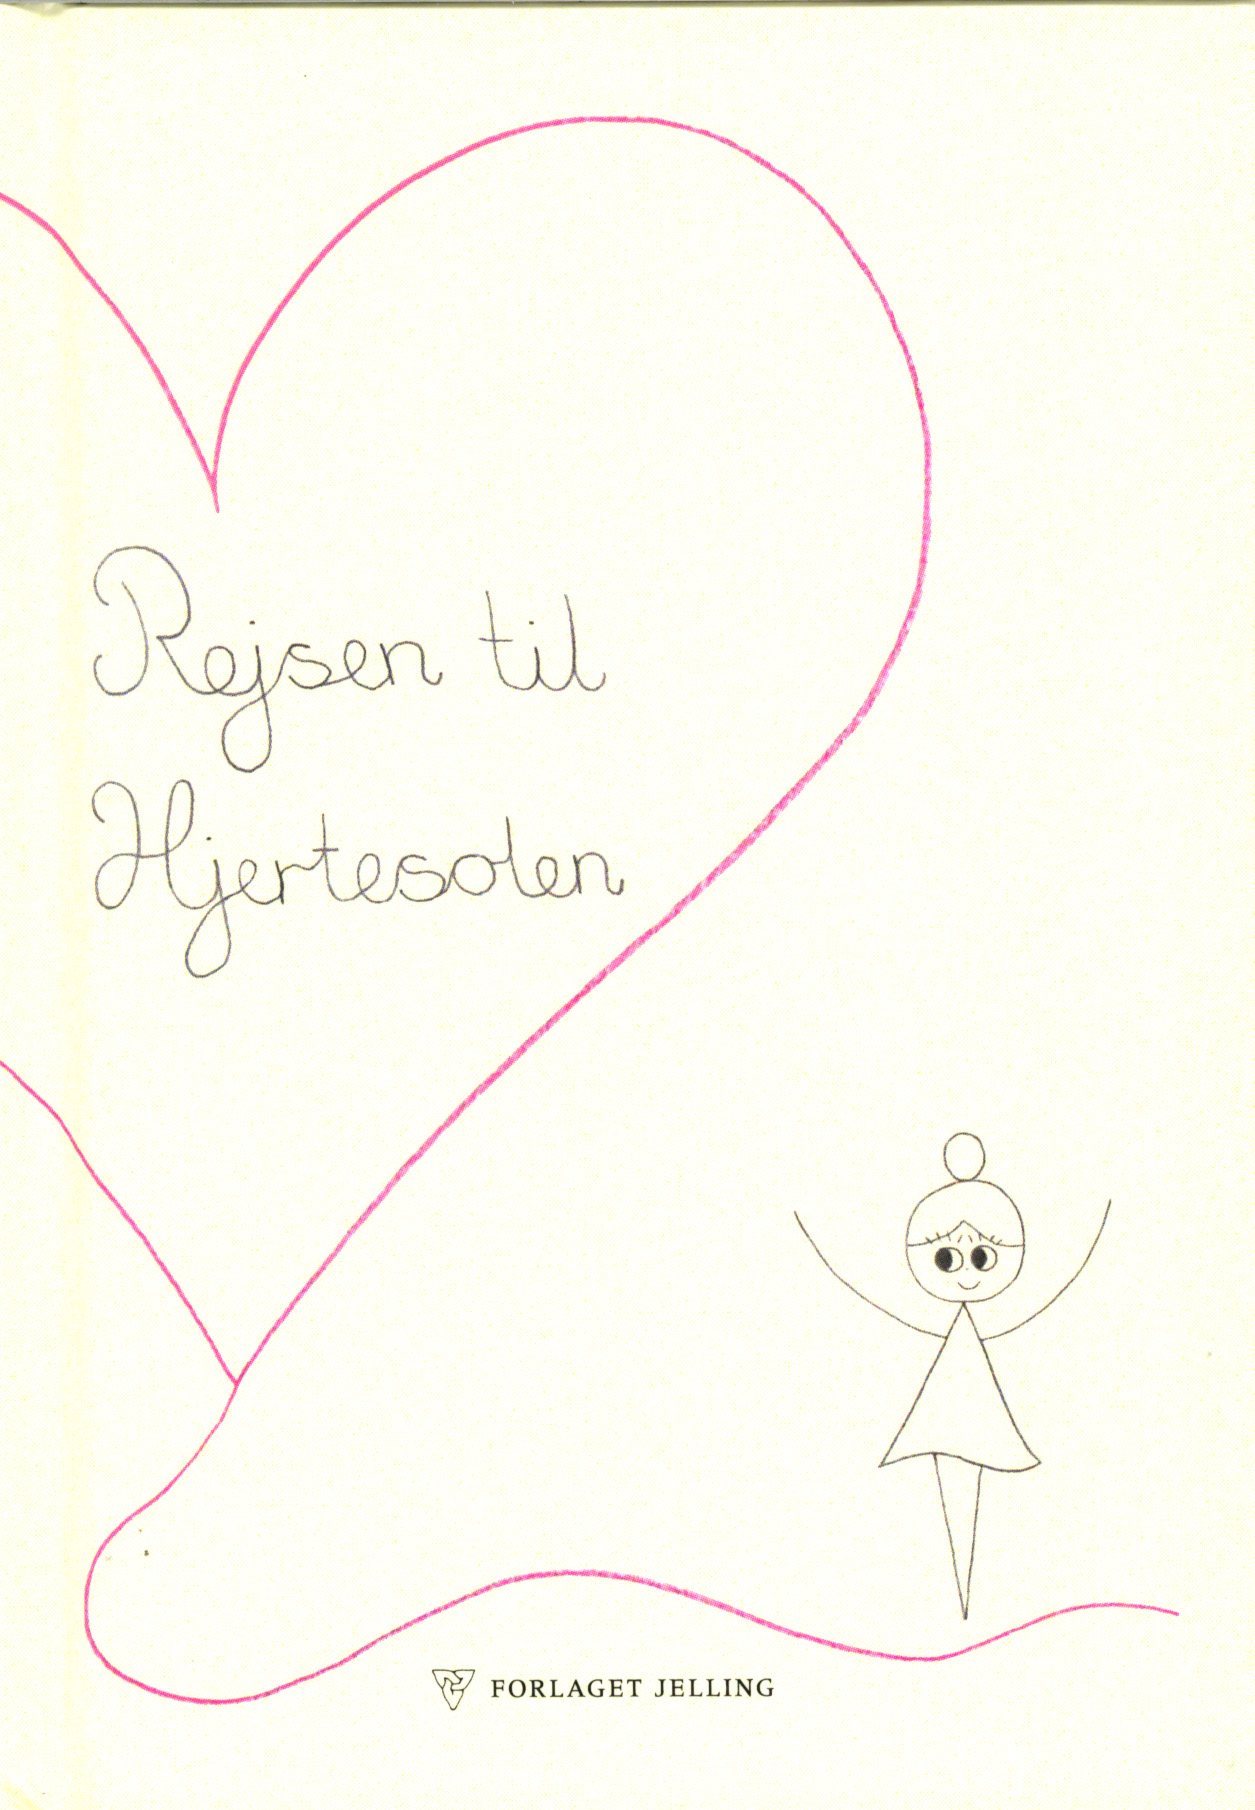 Rejsen til
Hjertesolen
FORLAGET JELLING